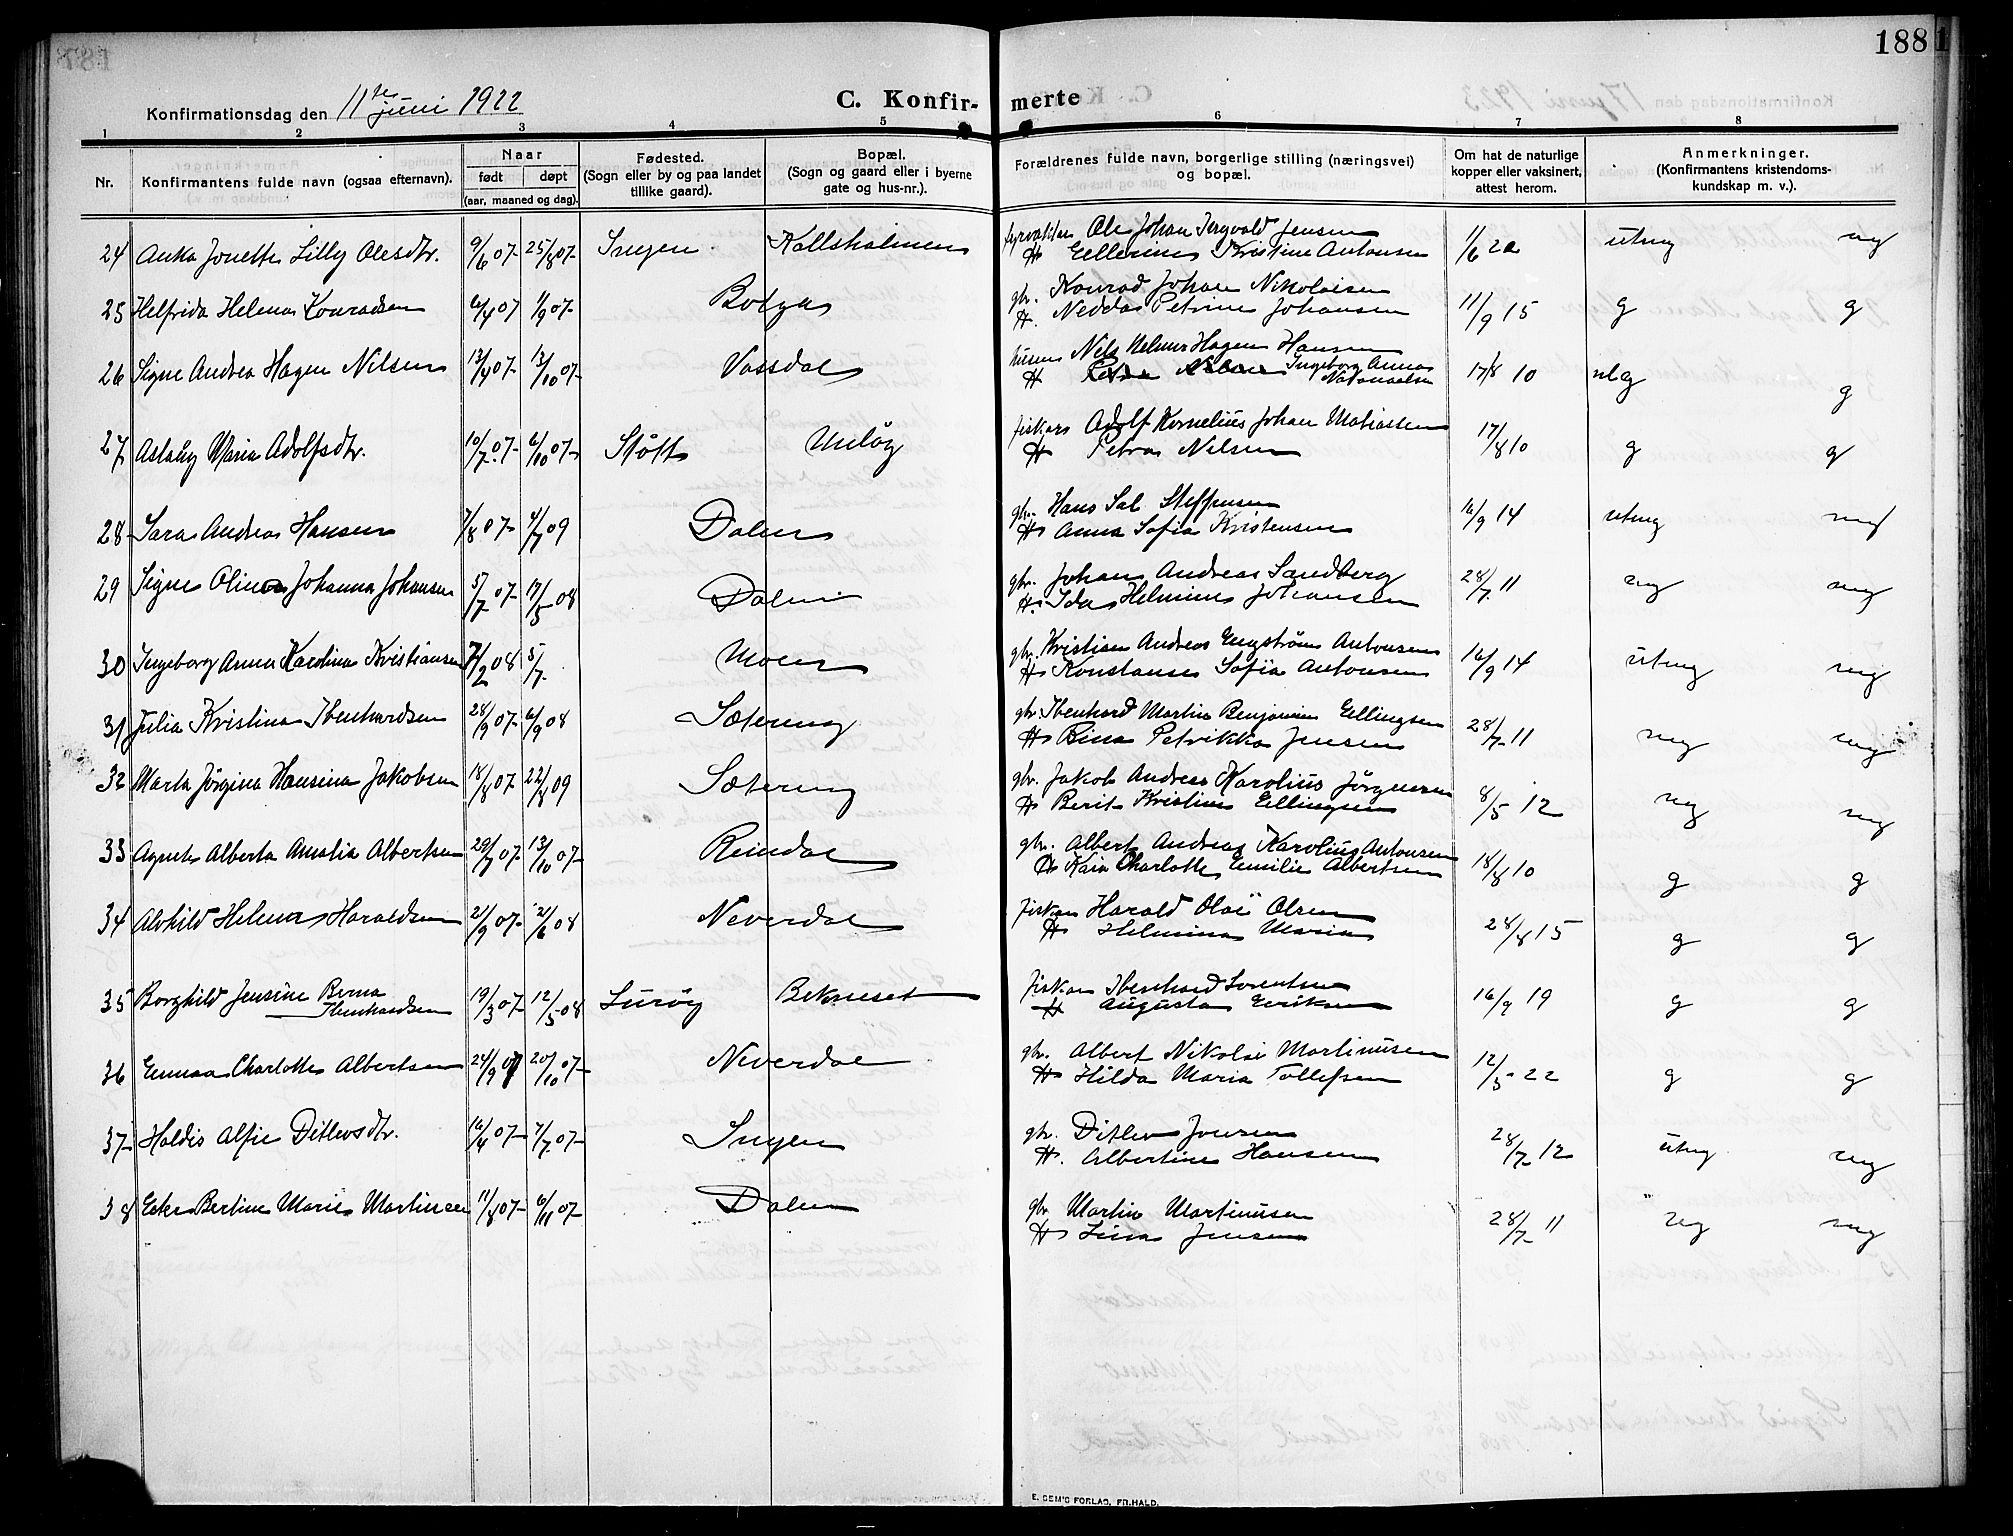 188
Konfirmationsdag den 11te juni 1922
C. Konfir-merte
1 2 3 4 5 6 7 8
Nr. Konfirmantens fulde navn (ogsaa efternavn). Naar født døpt (aar, maaned og dag). Fødested. (Sogn eller by og paa landet tillike gaard). Bopæl. (Sogn og gaard eller i byerne gate og hus-nr.). Forældrenes fulde navn, borgerlige stilling (næringsvei) og bopæl. Om hat de naturlige kopper eller vaksinert, attest herom. Anmerkninger. (Konfirmantens kristendoms-kundskap m. v.).
24 Anka Jonette Lilly Olesdtr. 9/6 07 25/8 07 Ingen Kallsholmen fyrvokter Ole Johan Ingvald Jensen
H Ellerine Kristine Antonsen 1/6 20 utmg mg
25 Helfrida Helena Konradsen 6/4 07 1/9 07 Bolga gbr. Konrad Johan Nikolaisen
H. Nedda Petrine Johansen 11/9 15 g g
26 Signe Andrea Hagen Nilsen 13/4 07 13/10 07 Vassdal Nils Helmer Hagen Hansen
H Ingeborg Anna 17/8 10 g
27 Aslaug Maria Adolfsdtr. 10/7 07 6/10 07 Støtt fiskar Adolf Kornelius Johan Matiassen
H Petra Nilsen 17/8 10 g g
28 Sara Andrea Hansen 7/8 07 4/7 09 Dalen gbr. Hans Sal. Steffensen
H Anna Sofia Kristensen 16/9 14 utmg mg
29 Signe Olina Johanna Johansen 5/7 07 17/5 08 Dalen gbr. Johan Andreas Sandberg
H. Ida Helmine Johansen 28/7 11 mg mg
30 Ingeborg Anna Karolina Kristiansen 7/2 08 5/7 Moen gbr. Kristian Andreas Engstrøm Antonsen
H Konstanse Sofia Antonsen 16/9 14 utmg mg
31 Julia Kristina Ibenhardsen 28/9 07 6/9 08 Sæteråg gbr. Ibenhard Martin Benjamin Ellingsen
H Bina Petrikka Jensen 28/7 11 mg mg
32 Marta Jørgina Hansina Jakobsen 18/8 07 22/8 09 Sæteråg gbr. Jakob Andreas Karolius Jørgensen
H Berit Kristine Ellingsen 8/5 12 mg mg
33 Agnete Alberta Amalia Albertsen 29/7 07 13/10 07 Reindal gbr. Albert Andreas Karolius Antonsen
H Kaia Charlotte Emilie Albertsen 18/8 10 g g
34 Alvhild Helena Haraldsen 21/9 07 21/6 08 Neverdal fiskar Harald Olai Olsen
H Helmina Maria 28/8 15 g g
35 Borghild Jensine Berna Ibenhardsen 19/3 07 12/5 08 Lurøy fiskar Ibenhard Lorentsen
H Augusta Eriksen 16/9 19 g g
36 Emma Charlotte Albertsen 24/9 07 20/10 07 Neverdal gbr. Albert Nikolai Martinusen
H Hilda Maria Tollefsen 12/5 22 g g
37 Haldis Alfie Ditlevsdtr. 16/4 07 7/7 07 Ingen gbr. Ditlev Jensen
H. Albertine Hansen 28/7 12 utmg mg
38 Bertine Marie Martinsen 11/8 07 6/11 07 Dalen gbr Martin Martinusen
H Lina Jensen 28/7 11 mg mg
E. SEM'S FORLAG, FR.HALD.